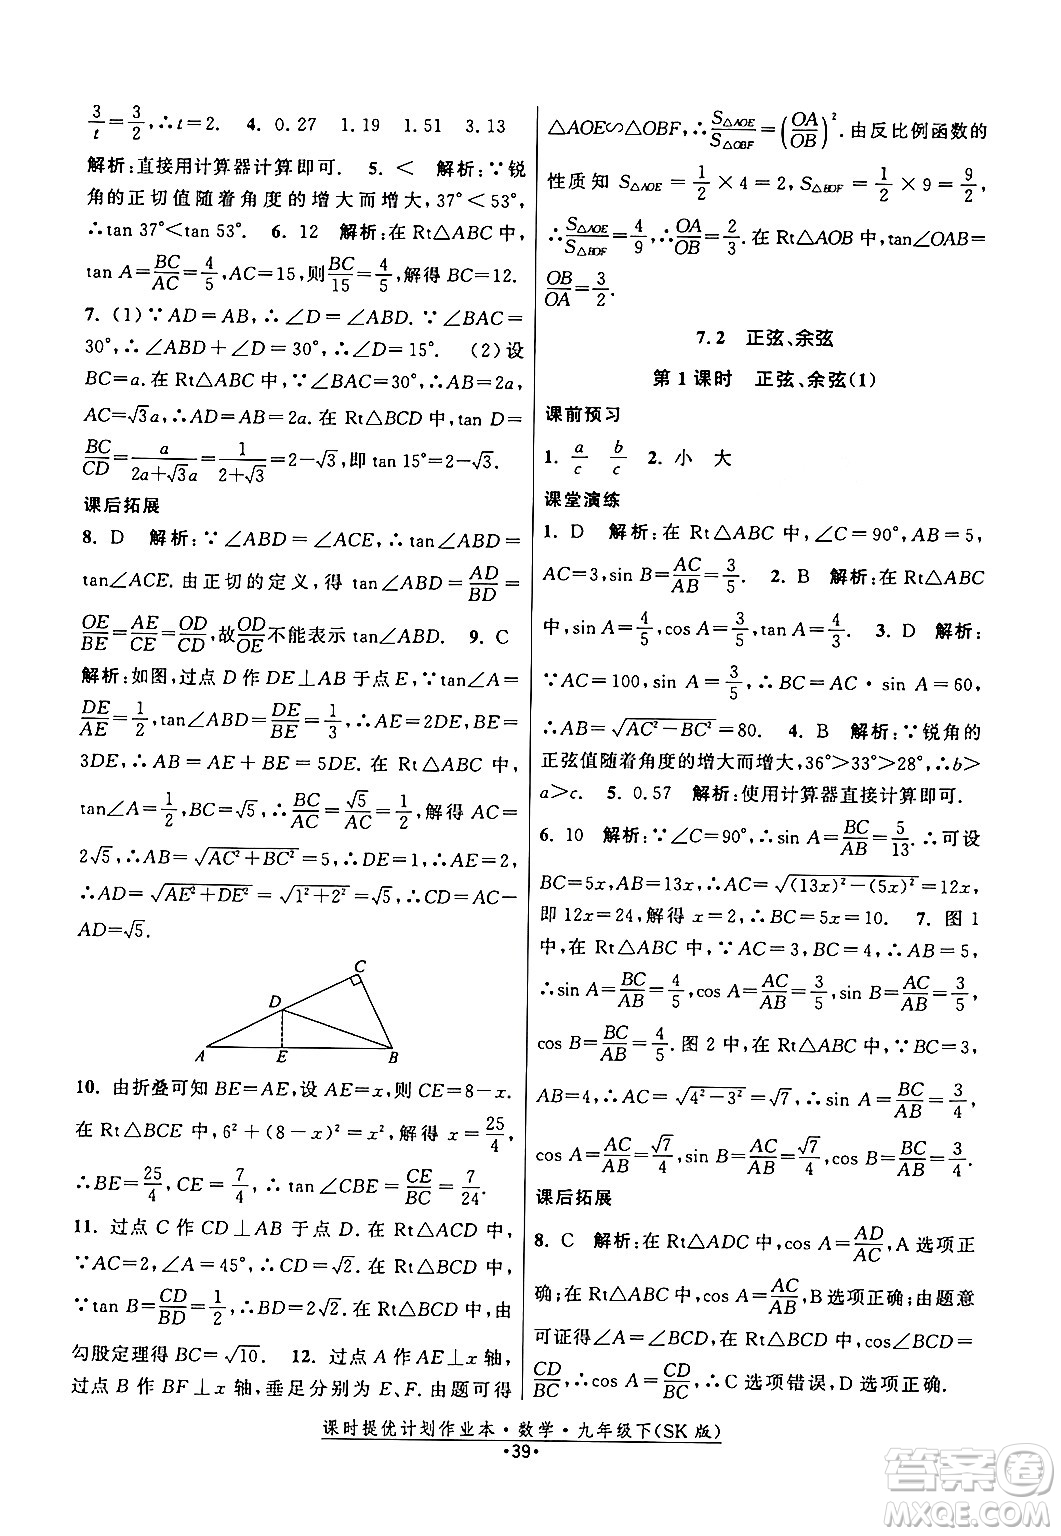 3/t=3/2,∴t=2. 4. 0.27 1.19 1.51 3.13
解析:直接用计算器计算即可. 5. < 解析:∵锐
角的正切值随着角度的增大而增大,37°<53°,
∴tan 37°<tan 53°. 6. 12 解析:在 Rt△ABC 中,
tan A=BC/AC=4/5,AC=15,则BC/15=4/5,解得 BC=12.
7. (1) ∵AD=AB,∴∠D=∠ABD.∵∠BAC=
30°,∴∠ABD+∠D=30°,∴∠D=15°. (2)设
BC=a.在 Rt△ABC 中,∵∠BAC=30°,∴AB=2a,
AC=√3a,∴AD=AB=2a.在 Rt△BCD 中,tan D=
BC/CD=a/(2a+√3a)=1/(2+√3)=2-√3,即 tan 15°=2-√3.
课后拓展
8. D 解析:∵∠ABD=∠ACE,∴tan∠ABD=
tan∠ACE.由正切的定义,得 tan∠ABD=AD/BD=
OE/BE=AE/CE=OD/CD,故OD/OE不能表示 tan∠ABD. 9. C
解析:如图,过点 D 作 DE⊥AB 于点 E,∵tan∠A=
DE/AE=1/2,tan∠ABD=DE/BE=1/3,∴AE=2DE,BE=
3DE,∴AB=AE+BE=5DE.在 Rt△ABC 中,
tan∠A=1/2,BC=√5,∴BC/AC=√5/AC=1/2,解得 AC=
2√5,∴AB=√(AC²+BC²)=5,∴DE=1,AE=2,
∴AD=√(AE²+DE²)=√(1²+2²)=√5,∴CD=AC-
AD=√5.
C
D
A E B
10. 由折叠可知 BE=AE,设 AE=x,则 CE=8-x.
在 Rt△BCE 中,6²+(8-x)²=x²,解得 x=25/4,
∴BE=25/4,CE=7/4,∴tan∠CBE=CE/BC=7/24.
11. 过点 C 作 CD⊥AB 于点 D.在 Rt△ACD 中,
∵AC=2,∠A=45°,∴AD=CD=√2.在 Rt△BCD 中,
∵tan B=CD/BD=1/2,∴BD=2√2.在 Rt△BCD 中,由
勾股定理得 BC=√10. 12. 过点 A 作 AE⊥x 轴,
过点 B 作 BF⊥x 轴,垂足分别为 E、F.由题可得
△AOE∽△OBF,∴S△AOE/S△OBF=(OA/OB)².由反比例函数的
性质知 S△AOE=1/2×4=2,S△BOF=1/2×9=9/2,
∴S△AOE/S△BOF=4/9,∴OA/OB=2/3.在 Rt△AOB 中,tan∠OAB=
OB/OA=3/2.
7.2 正弦、余弦
第 1 课时 正弦、余弦(1)
课前预习
1. a/c b/c 2. 小 大
课堂演练
1. D 解析:在 Rt△ABC 中,∠C=90°,AB=5,
AC=3,sin B=AC/AB=3/5. 2. B 解析:在 Rt△ABC
中,sin A=4/5,cos A=3/5,tan A=4/3. 3. D 解析:
∵AC=100,sin A=3/5,∴BC=AC·sin A=60,
∴AB=√(AC²-BC²)=80. 4. B 解析:∵锐角的
正弦值随着角度的增大而增大,36°>33°>28°,∴b>
a>c. 5. 0.57 解析:使用计算器直接计算即可.
6. 10 解析:∵∠C=90°,∴sin A=BC/AB=5/13.∴可设
BC=5x,AB=13x,∴AC=√((13x)²-(5x)²)=12x,
即 12x=24,解得 x=2,∴BC=5x=10. 7. 图 1
中,在 Rt△ABC 中,∵AC=3,BC=4,∴AB=5,
∴sin A=BC/AB=4/5,cos A=AC/AB=3/5,sin B=AC/AB=3/5,
cos B=BC/AB=4/5.图 2 中,在 Rt△ABC 中,∵BC=3,
AB=4,∴AC=√(4²-3²)=√7,∴sin A=BC/AB=3/4,
cos A=AC/AB=√7/4,sin B=AC/AB=√7/4,cos B=BC/AB=3/4.
课后拓展
8. C 解析:在 Rt△ADC 中,cos A=AD/AC,A 选项正
确;在 Rt△ABC 中,cos A=AC/AB,B选项正确;由题意
可证得∠A=∠BCD,在 Rt△BCD 中,cos∠BCD=
CD/BC,∴cos A=CD/BC,∴C 选项错误,D 选项正确.
课时提优计划作业本·数学·九年级下(SK 版)
·39·
答案圈
MXQE.COM